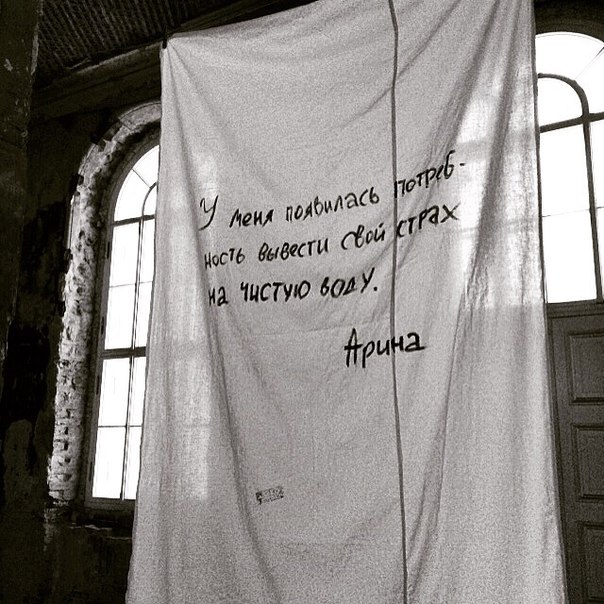 У меня появилась потреб-
ность вывести свой страх
на чистую воду.
Арина